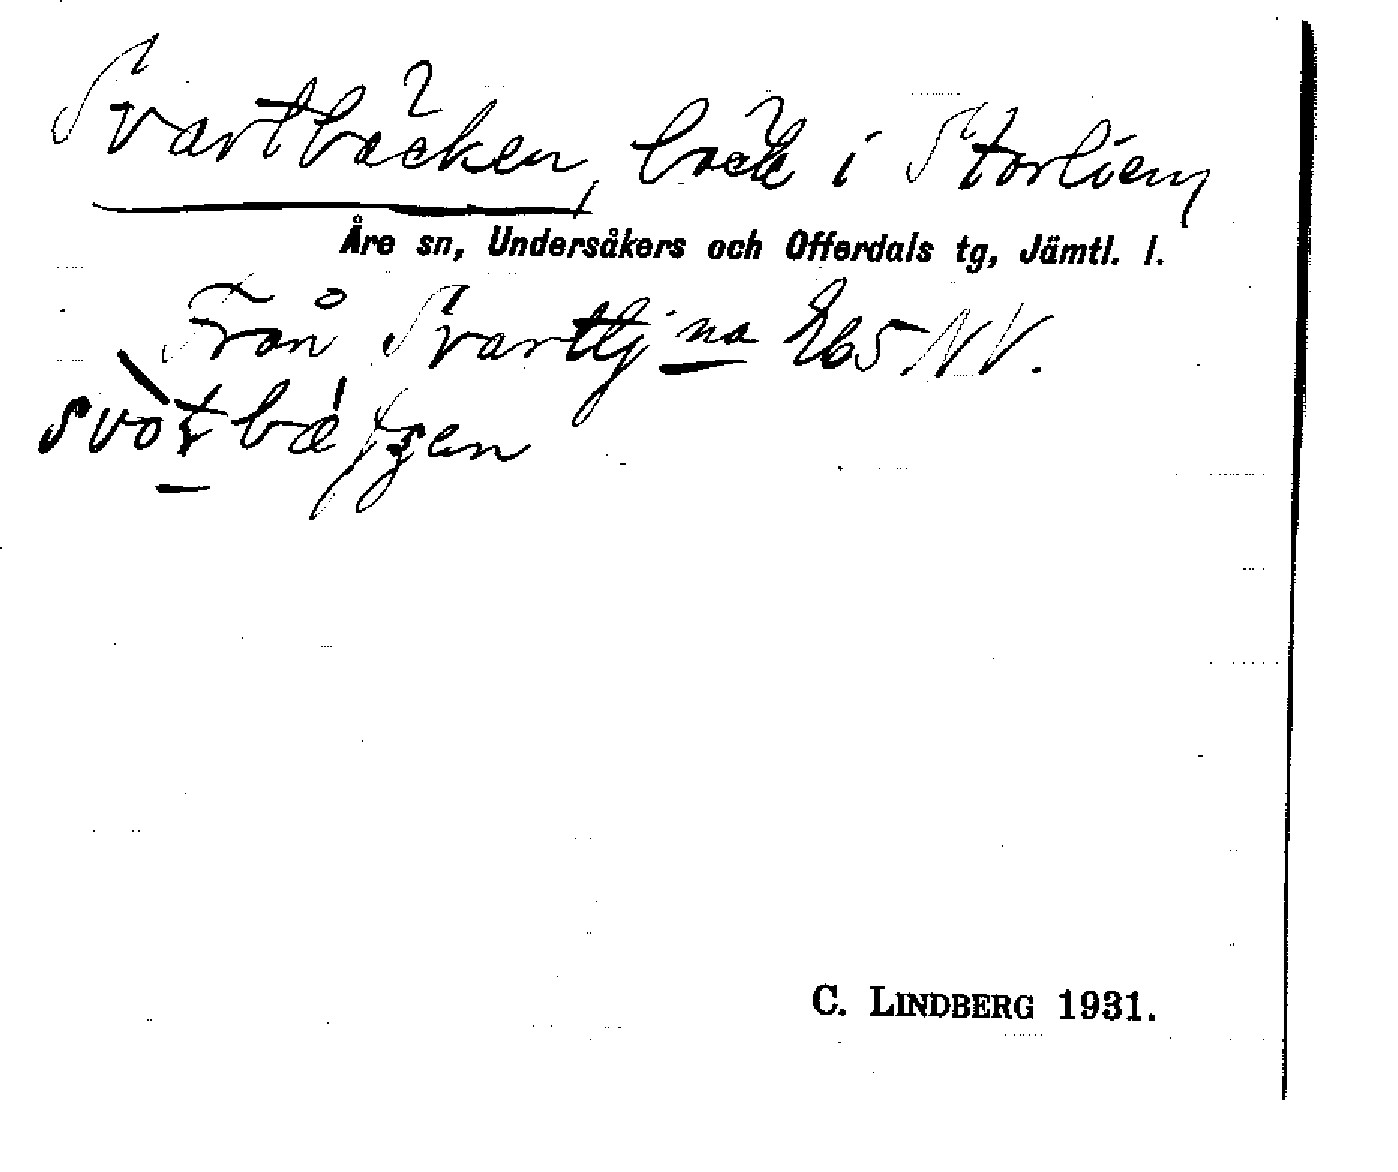 Svartbäcken, bäck i Storlien,
Åre sn, Undersåkers och Offerdals tg, Jämtl. l.
Från Svarttj na 265 NV.
C. LINDBERG 1931.